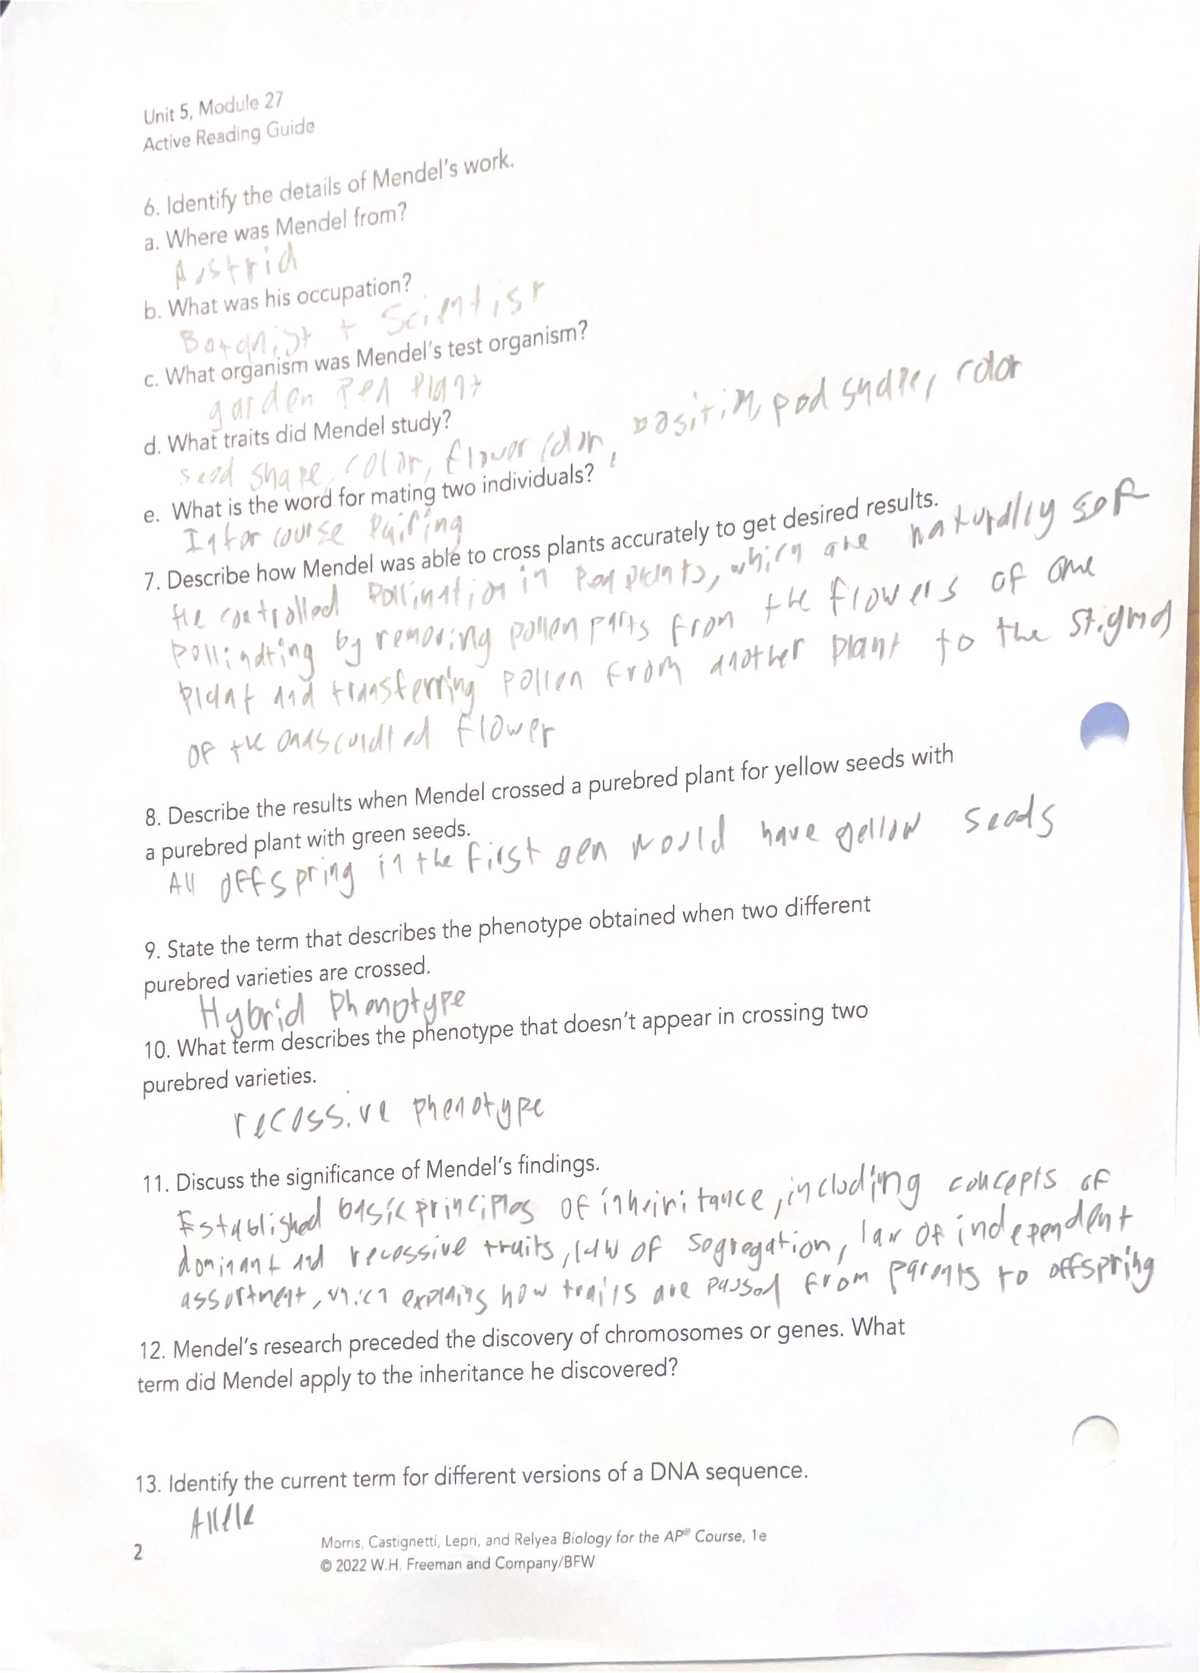 Unit 5, Module 27
Active Reading Guide
6. Identify the details of Mendel's work.
a. Where was Mendel from?
Austria
b. What was his occupation?
Botanist + Scientist
c. What organism was Mendel's test organism?
garden Pea Plant
d. What traits did Mendel study?
seed shape, color, flower color, position, pod shape, color
e. What is the word for mating two individuals?
Intercourse Pairing
7. Describe how Mendel was able to cross plants accurately to get desired results.
He controlled Pollination in Pea plants, which are naturally self
pollinating by removing pollen parts from the flowers of one
plant and transferring pollen from another plant to the stigma
of the emasculated flower
8. Describe the results when Mendel crossed a purebred plant for yellow seeds with
a purebred plant with green seeds.
All offspring in the first gen would have yellow seeds
9. State the term that describes the phenotype obtained when two different
purebred varieties are crossed.
Hybrid Phenotype
10. What term describes the phenotype that doesn't appear in crossing two
purebred varieties.
recessive phenotype
11. Discuss the significance of Mendel's findings.
Established basic principles of inheiritance, including concepts of
dominant and recessive traits, law of segregation, law of independent
assortment, which explains how traits are passed from parents to offspring
12. Mendel's research preceded the discovery of chromosomes or genes. What
term did Mendel apply to the inheritance he discovered?
13. Identify the current term for different versions of a DNA sequence.
Allele
2
Morris, Castignetti, Lepri, and Relyea Biology for the AP® Course, 1e
© 2022 W.H. Freeman and Company/BFW